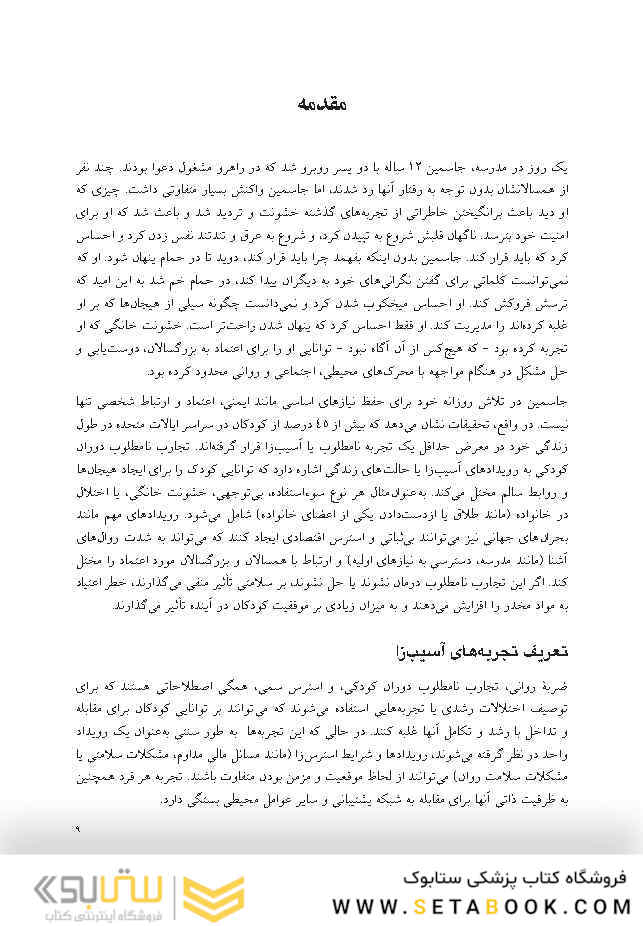 مقدمه
یک روز در مدرسه، جاسمین ۱۲ ساله با دو پسر روبرو شد که در راهرو مشغول دعوا بودند. چند نفر
از همسالانشان بدون توجه به رفتار آنها رد شدند، اما جاسمین واکنش بسیار متفاوتی داشت. چیزی که
او دید باعث برانگیختن خاطراتی از تجربه‌های گذشته خشونت و تردید شد و باعث شد که او برای
امنیت خود بترسد. ناگهان قلبش شروع به تپیدن کرد، و شروع به عرق و تندتند نفس زدن کرد و احساس
کرد که باید فرار کند. جاسمین بدون اینکه بفهمد چرا باید فرار کند، دوید تا در حمام پنهان شود. او که
نمی‌توانست کلماتی برای گفتن نگرانی‌های خود به دیگران پیدا کند، در حمام خم شد به این امید که
ترسش فروکش کند. او احساس میخکوب شدن کرد و نمی‌دانست چگونه سیلی از هیجان‌ها که بر او
غلبه کرده‌اند را مدیریت کند. او فقط احساس کرد که پنهان شدن راحت‌تر است. خشونت خانگی که او
تجربه کرده بود – که هیچ‌کس از آن آگاه نبود – توانایی او را برای اعتماد به بزرگسالان، دوست‌یابی و
حل مشکل در هنگام مواجهه با محرک‌های محیطی، اجتماعی و روانی محدود کرده بود.
جاسمین در تلاش روزانه خود برای حفظ نیازهای اساسی مانند ایمنی، اعتماد و ارتباط شخصی تنها
نیست. در واقع، تحقیقات نشان می‌دهد که بیش از ٤٥ درصد از کودکان در سراسر ایالات متحده در طول
زندگی خود در معرض حداقل یک تجربه نامطلوب یا آسیب‌زا قرار گرفته‌اند. تجارب نامطلوب دوران
کودکی به رویدادهای آسیب‌زا یا حالت‌های زندگی اشاره دارد که توانایی کودک را برای ایجاد هیجان‌ها
و روابط سالم مختل می‌کند. به‌عنوان‌مثال هر نوع سوءاستفاده، بی‌توجهی، خشونت خانگی، یا اختلال
در خانواده (مانند طلاق یا ازدست‌دادن یکی از اعضای خانواده) شامل می‌شود. رویدادهای مهم مانند
بحران‌های جهانی نیز می‌توانند بی‌ثباتی و استرس اقتصادی ایجاد کنند که می‌تواند به شدت روال‌های
آشنا (مانند مدرسه، دسترسی به نیازهای اولیه) و ارتباط با همسالان و بزرگسالان مورد اعتماد را مختل
کند. اگر این تجارب نامطلوب درمان نشوند یا حل نشوند، بر سلامتی تأثیر منفی می‌گذارند، خطر اعتیاد
به مواد مخدر را افزایش می‌دهند و به میزان زیادی بر موفقیت کودکان در آینده تأثیر می‌گذارند.
تعریف تجربه‌های آسیب‌زا
ضربهٔ روانی، تجارب نامطلوب دوران کودکی، و استرس سمی، همگی اصطلاحاتی هستند که برای
توصیف اختلالات رشدی یا تجربه‌هایی استفاده می‌شوند که می‌توانند بر توانایی کودکان برای مقابله
و تداخل با رشد و تکامل آنها غلبه کنند. در حالی که این تجربه‌ها به طور سنتی به‌عنوان یک رویداد
واحد در نظر گرفته می‌شوند، رویدادها و شرایط استرس‌زا (مانند مسائل مالی مداوم، مشکلات سلامتی یا
مشکلات سلامت روان) می‌توانند از لحاظ موقعیت و مزمن بودن متفاوت باشند. تجربه هر فرد همچنین
به ظرفیت ذاتی آنها برای مقابله به شبکه پشتیبانی و سایر عوامل محیطی بستگی دارد.
۹
فروشگاه کتاب پزشکی ستابوک
WWW.SETABOOK.COM
ستابوک
فروشگاه اینترنتی کتاب